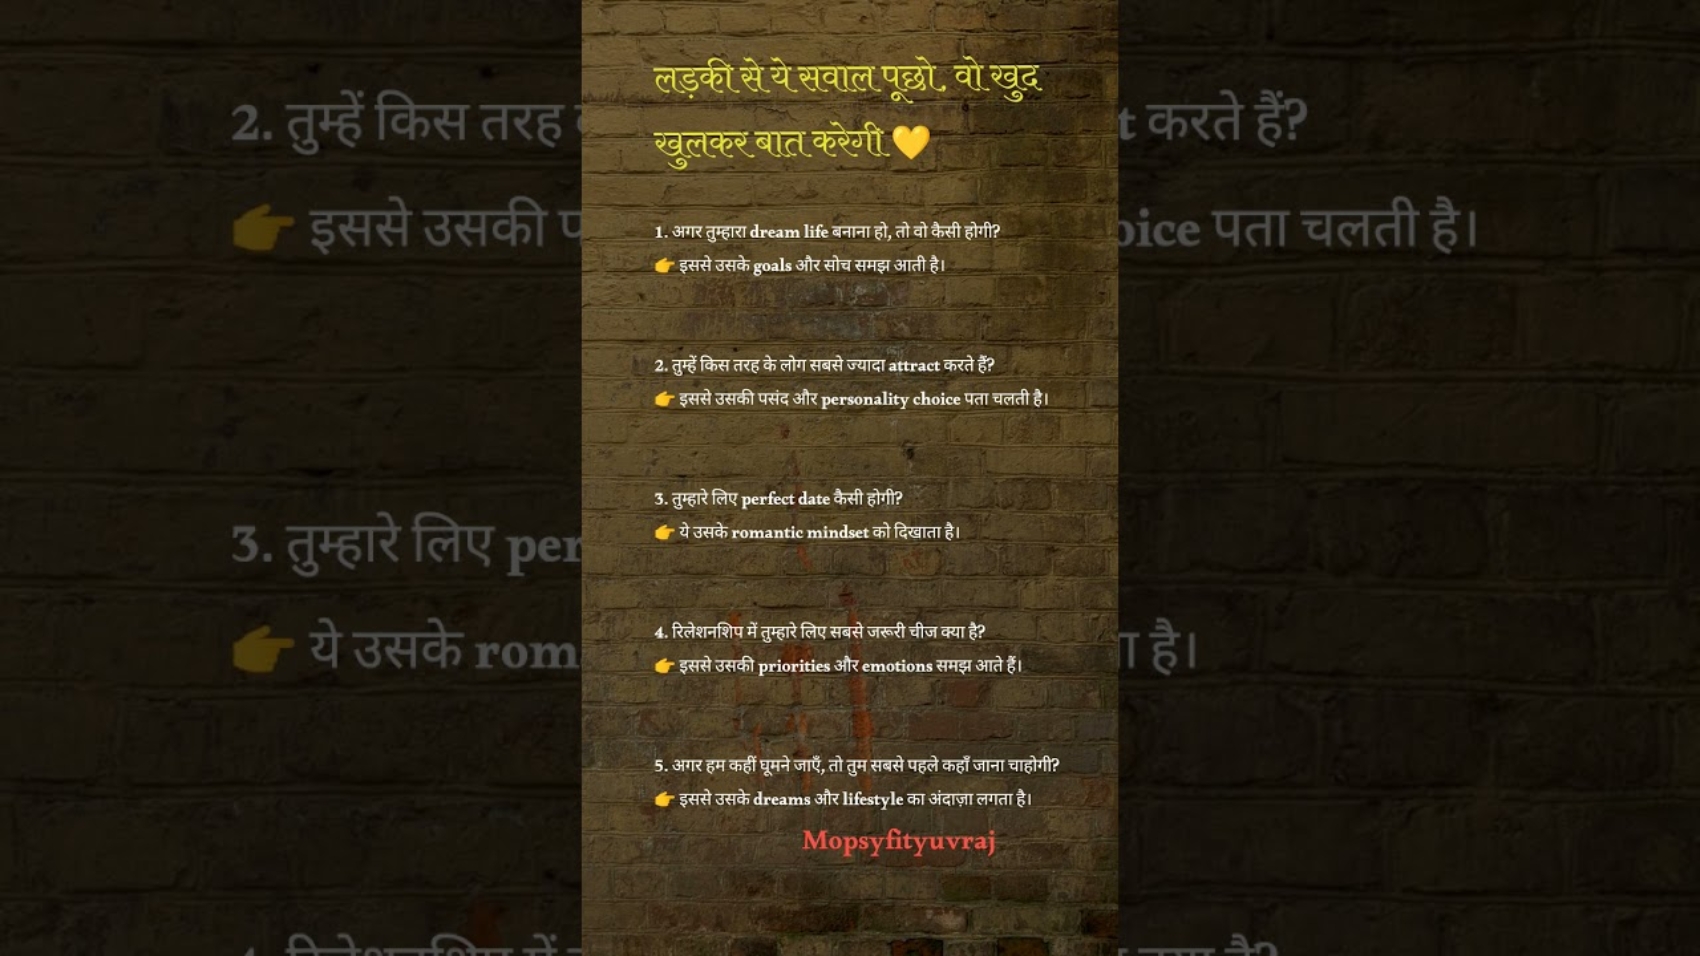 लड़की से ये सवाल पूछो, वो खुद
खुलकर बात करेगी 💛
1. अगर तुम्हारा dream life बनाना हो, तो वो कैसी होगी?
👉 इससे उसके goals और सोच समझ आती है।
2. तुम्हें किस तरह के लोग सबसे ज्यादा attract करते हैं?
👉 इससे उसकी पसंद और personality choice पता चलती है।
3. तुम्हारे लिए perfect date कैसी होगी?
👉 ये उसके romantic mindset को दिखाता है।
4. रिलेशनशिप में तुम्हारे लिए सबसे जरूरी चीज क्या है?
👉 इससे उसकी priorities और emotions समझ आते हैं।
5. अगर हम कहीं घूमने जाएँ, तो तुम सबसे पहले कहाँ जाना चाहोगी?
👉 इससे उसके dreams और lifestyle का अंदाज़ा लगता है।
Mopsyfityuvraj
2. तुम्हें किस तरह
t करते हैं?
👉 इससे उसकी
oice पता चलती है।
3. तुम्हारे लिए per
👉 ये उसके rom
है।